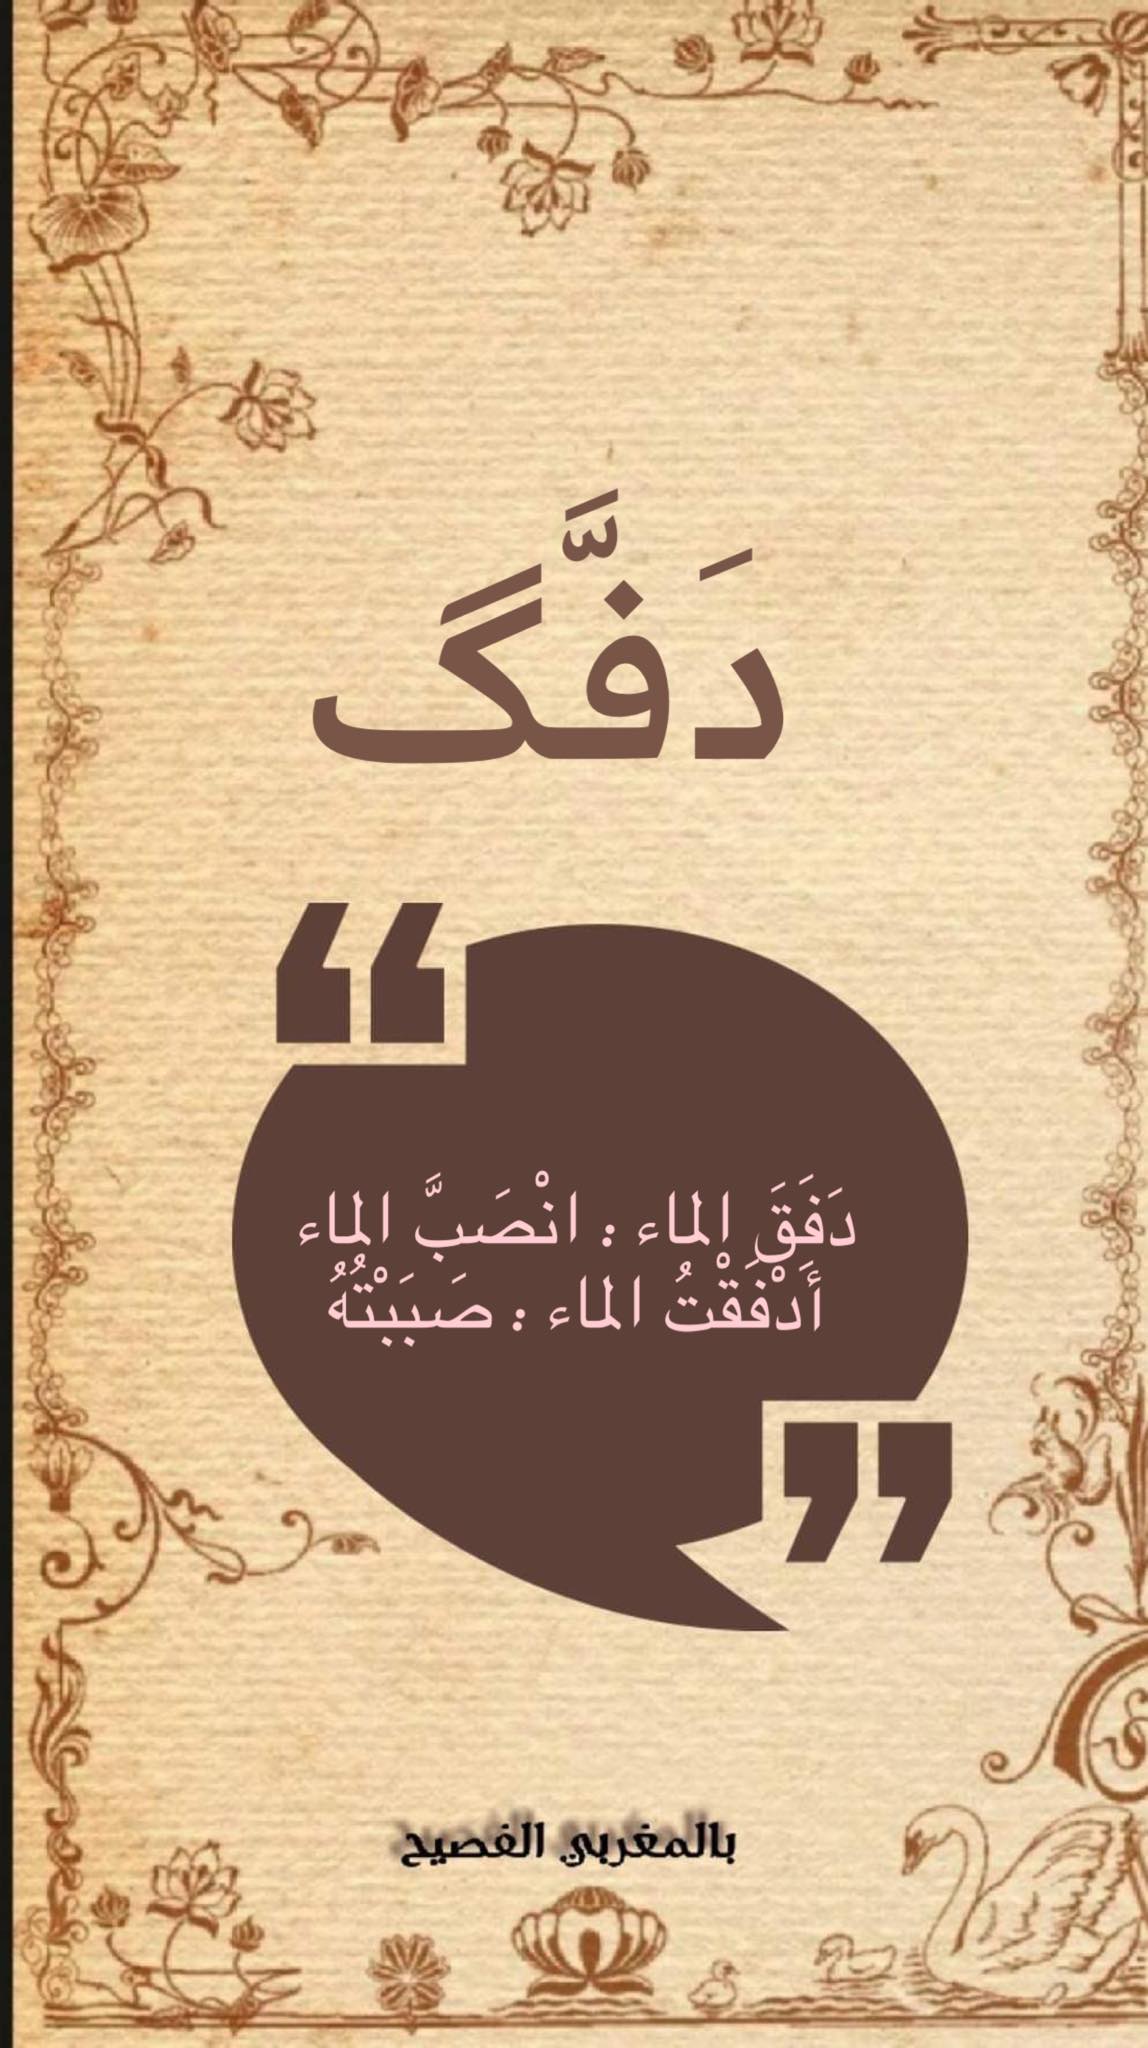 دَفَّگ
دَفَقَ الماء : انْصَبَّ الماء
أَدْفَقْتُ الماء : صَبَبْتُهُ
بالمغربي الفصيح